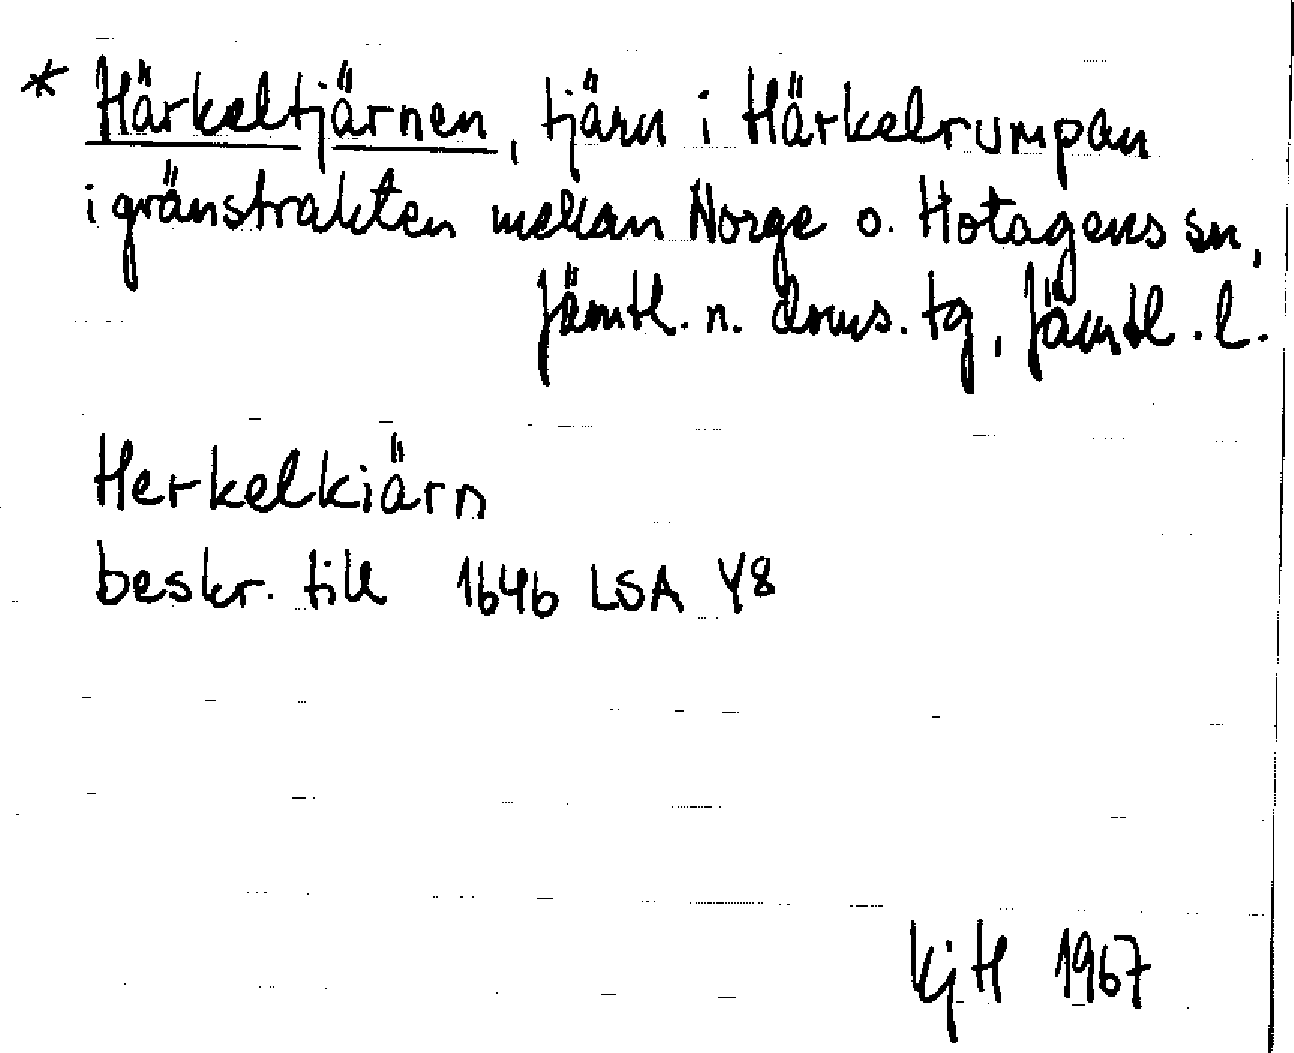 * Härkeltjärnen, tjärn i Härkelrumpan
i gränstrakten mellan Norge o. Hotagens sn,
Jämtl. n. doms. tg, Jämtl. l.
Herkelkiärn
beskr. till 1646 LSA Y8
KjH 1967